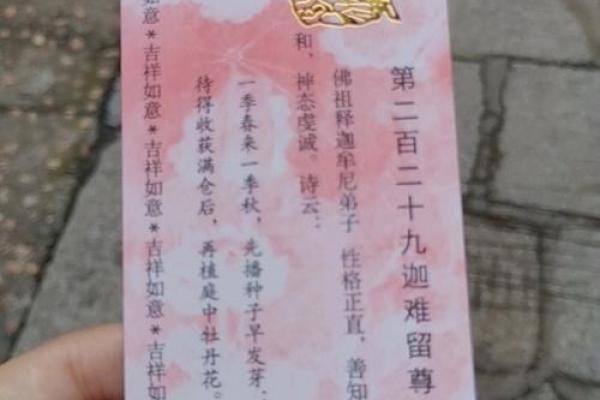 第二百二十九迦难留尊
佛祖释迦牟尼弟子 性格正直，善知
和，神态虔诚。诗云：
一季春来一季秋，先播种子早发芽，
待得收获满仓后，再植庭中牡丹花。
如意*吉祥如意*吉祥如意*吉祥如意*吉祥如意*吉祥